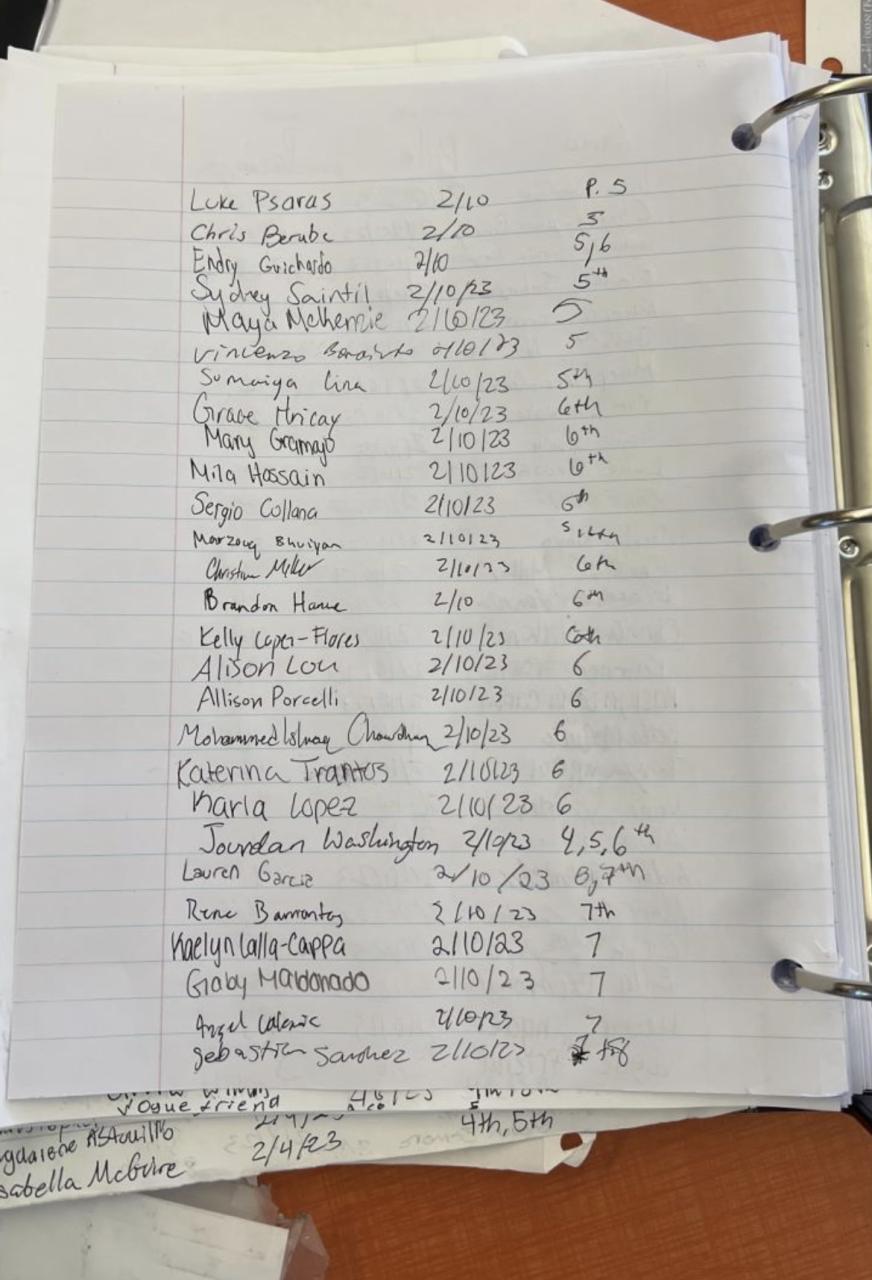 Luke Psaras 2/10 P. 5
Chris Berube 2/10 5
Endry Guichardo 2/10 5,6
Sydney Saintil 2/10/23 5th
Maya McKenzie 2/10/23 5
Vincenzo 2/10/23 5
Sumaiya Lina 2/10/23 5th
Grace Hricay 2/10/23 6th
Mary Gramajo 2/10/23 6th
Mila Hossain 2/10/23 6th
Sergio Collana 2/10/23 6th
Marzouq Bhuiyan 2/10/23
Christian Miller 2/10/23 6th
Brandon 2/10 6th
Kelly Lopez-Flores 2/10/23 6th
Alison Lou 2/10/23 6
Allison Porcelli 2/10/23 6
Mohammed Ishraq Chowdhury 2/10/23 6
Katerina Trantos 2/10/23 6
Karla Lopez 2/10/23 6
Jourdan Washington 2/10/23 4,5,6th
Lauren Garcia 2/10/23 7th
Rene 2/10/23 7th
Kaelyn Lalla-Cappa 2/10/23 7
Gaby Maldonado 2/10/23 7
Angel 2/10/23 7
Sebastian Sanchez 2/10/23
Vogue friend
2/4/23 4th, 5th
McGuire